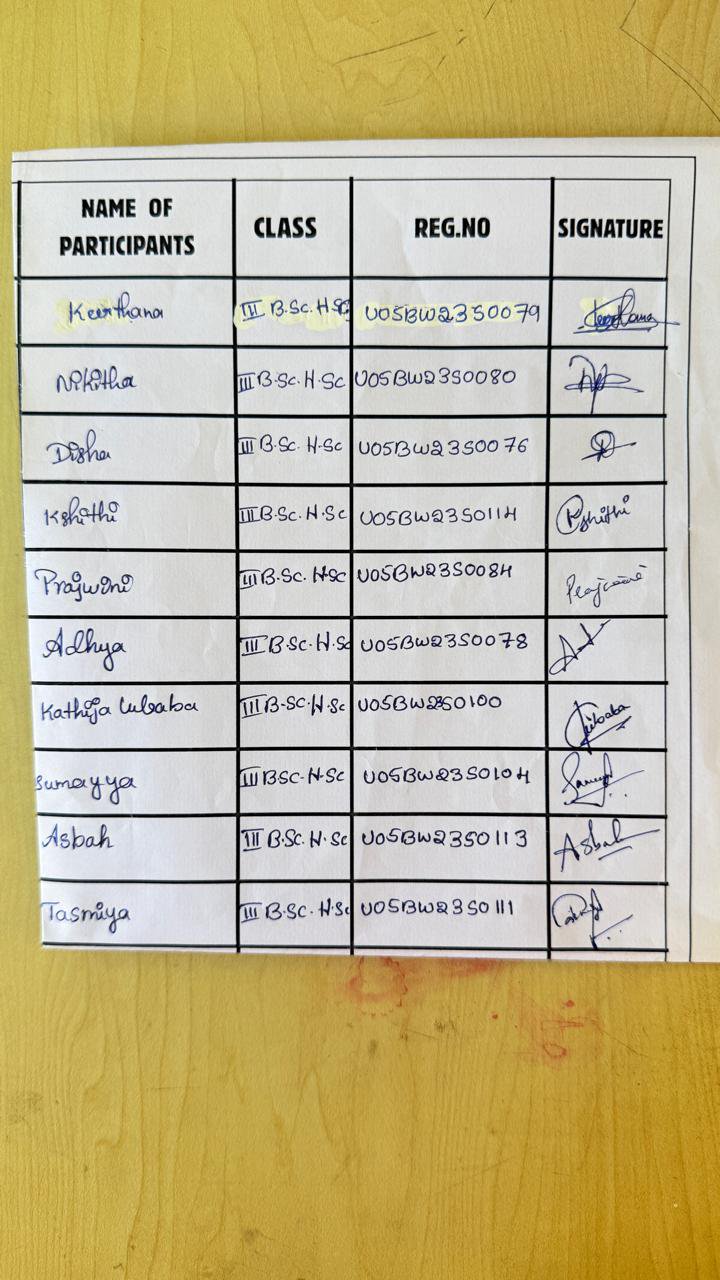 NAME OF PARTICIPANTS CLASS REG.NO SIGNATURE
Keerthana III B.Sc. H.Sc U05BW23S0079 Keerthana
Nikitha III B.Sc. H.Sc U05BW23S0080
Disha III B.Sc. H.Sc U05BW23S0076
Kshithi III B.Sc. H.Sc U05BW23S0114 Kshithi
Prajwini III B.Sc. H.Sc U05BW23S0084
Adhya III B.Sc. H.Sc U05BW23S0078
Kathija Lubaba III B.Sc. H.Sc U05BW23S0100 Lubaba
Sumayya III B.Sc. H.Sc U05BW23S0104
Asbah III B.Sc. H.Sc U05BW23S0113 Asbah
Tasmiya III B.Sc. H.Sc U05BW23S0111